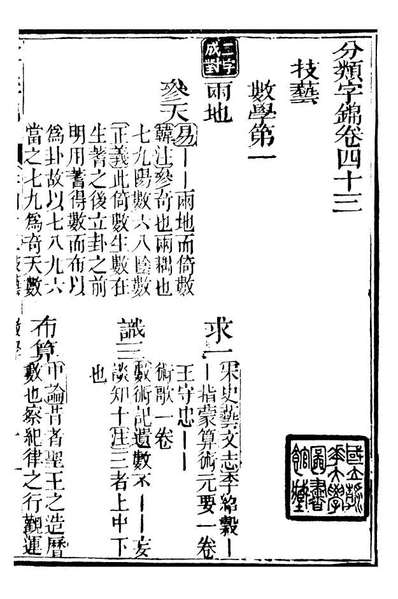 分類字錦卷四十三
技藝
數學第一
二字成對
兩地
參天
易——兩地而倚數
韓注參奇也兩耦也
七九陽數六八陰數
正義此倚數生數在
生蓍之後立卦之前
明用蓍得數而布以
為卦故以七八九六
當之七九為奇天數
求一
宋史藝文志李紹穀—
—指蒙算術元要一卷
王守忠——
術歌一卷
識三
數術記遺數不——妄
談知十注三者上中下
也
布算
中論昔者聖王之造曆
數也察紀律之行觀運
國立清華大學圖書館藏